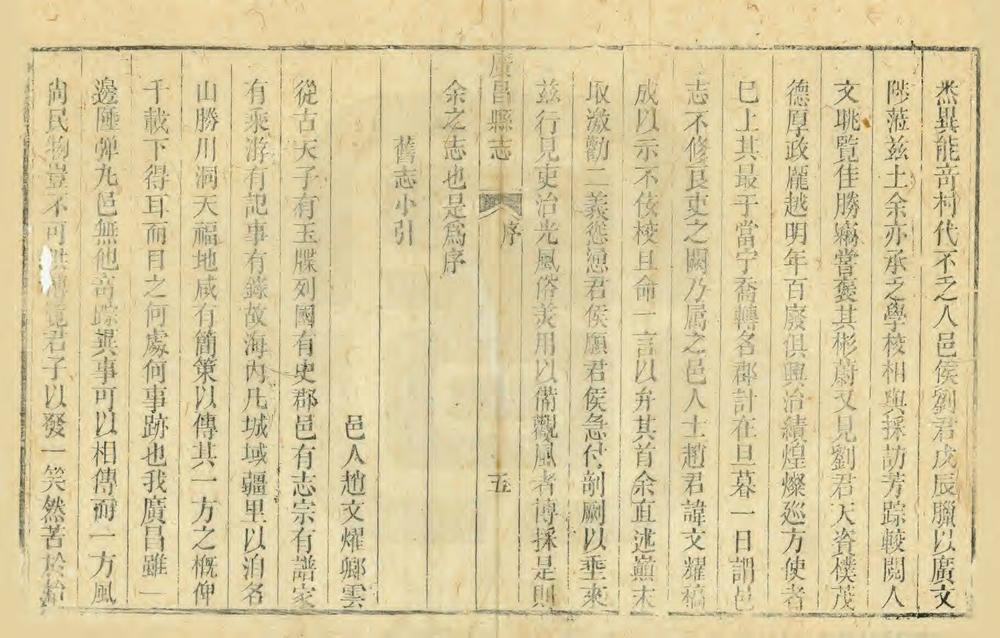 杰異能竒材代不乏人邑侯劉君戊辰臘以廣文
陟蒞茲土余亦承乏學校相與採訪芳踪較閱人
文眺覽佳勝竊嘗羨其彬蔚又見劉君天資樸茂
德厚政龐越明年百廢俱興治績煌燦廵方使者
巳上其最于當宁喬轉名郡計在旦暮一日謂邑
志不修良吏之闕乃屬之邑人士趙君諱文耀稿
成以示不佞校且命一言以弁其首余直述巔末
取激勸二義慫恿君侯願君侯急付剞劂以埀來
茲行見吏治光風俗美用以備觀風者博採是則
余之志也是爲序
廣昌縣志
序
五
舊志小引
邑人趙文燿鄉雲
從古天子有玉牒列國有史郡邑有志宗有譜家
有乘游有記事有錄故海內凡城域疆里以洎名
山勝川洞天福地咸有簡策以傳其一方之槪俾
千載下得耳而目之何處何事跡也我廣昌雖一
邊陲彈九邑無他竒踪異事可以相傳而一方風
尙民物豈不可供博覽君子以發一笑然苦於